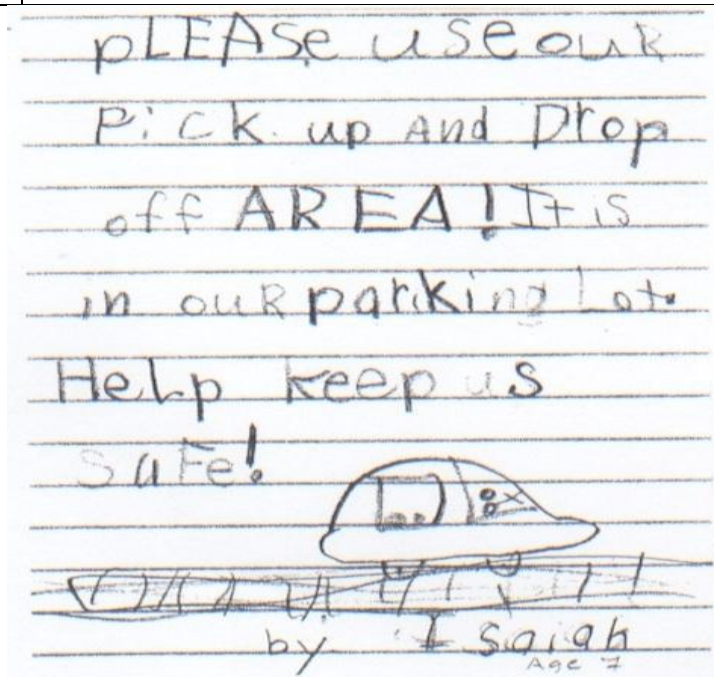 pLEASe useouR
Pick up and Drop
off AREA! It is
in ouR parking Lot.
HeLp keep us
SaFe!
by Isaiah
Age 7